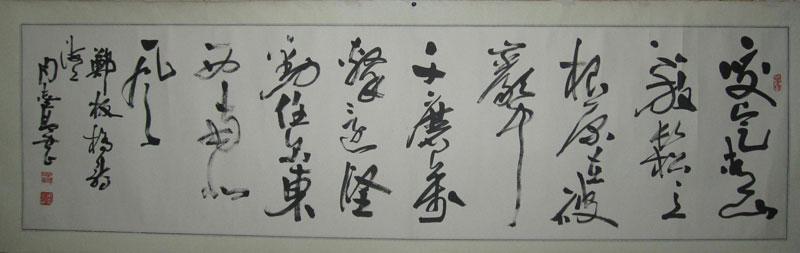 咬定青山
不放鬆立
根原在破
巖中
千磨萬
擊還堅
勁任尔東
西南北
風
鄭板橋詩
周